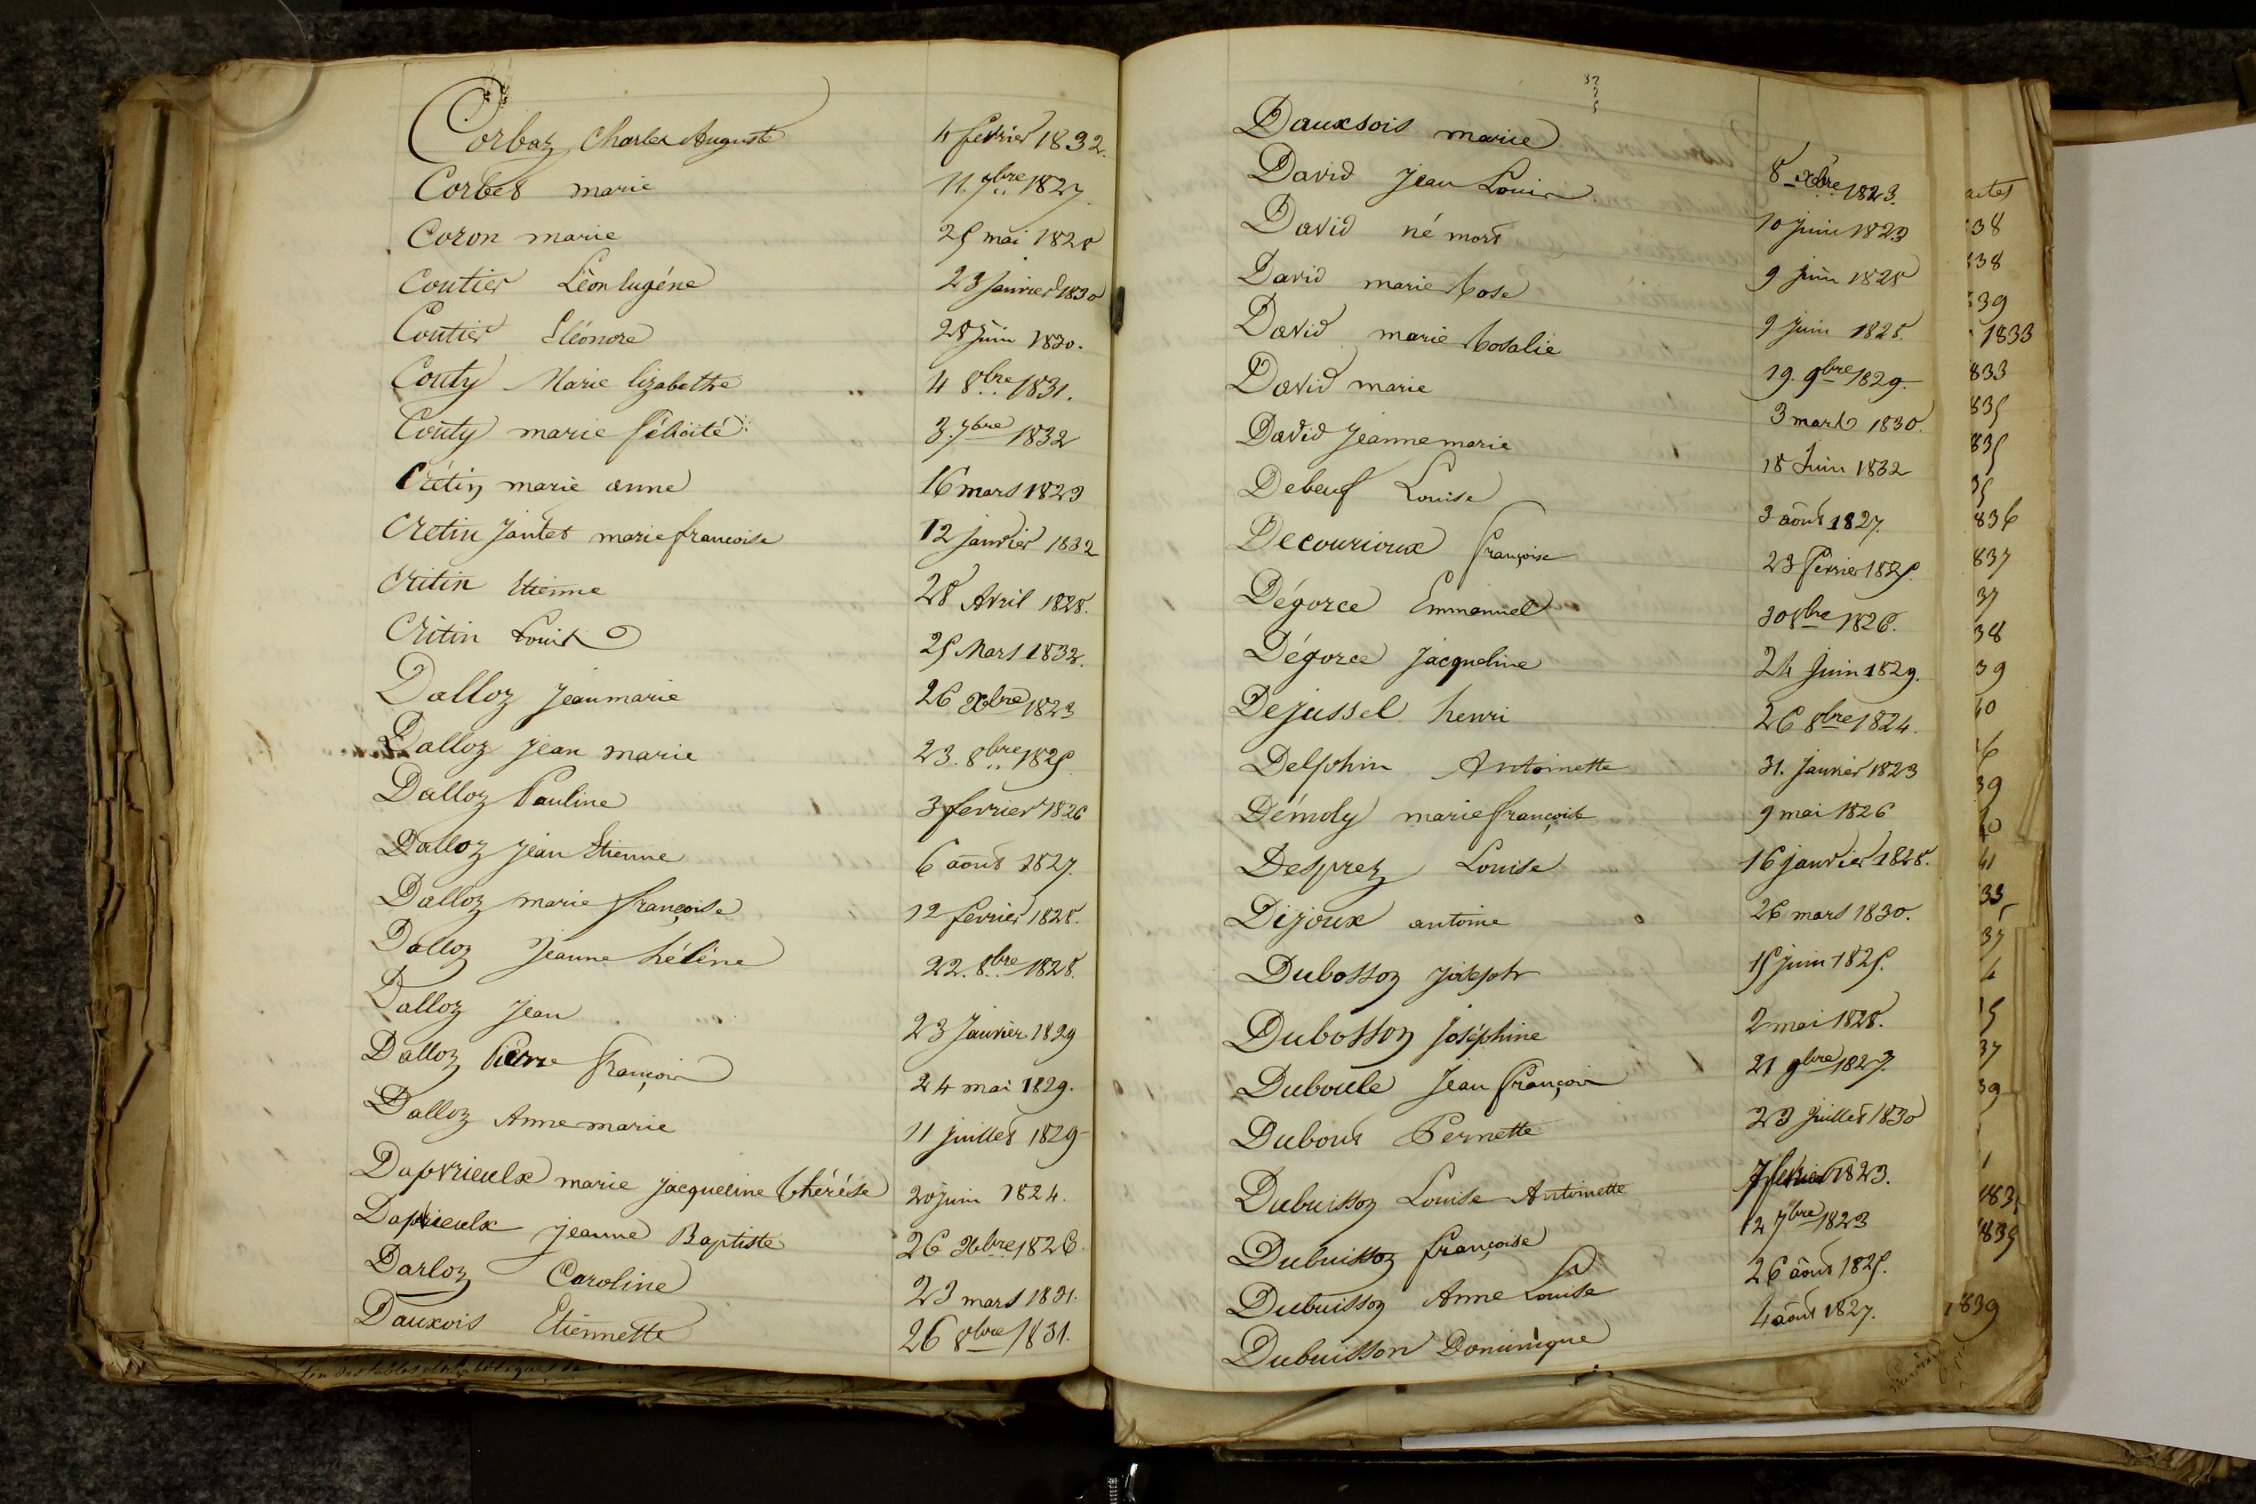 Corbaz Charles Auguste 4 fevrier 1832.
Corbet marie 11. 7bre 1827.
Coron marie 25 mai 1828
Coutier Léon Eugéne 23 Janvier 1830
Coutier Eléonore 28 juin 1830.
Couty Marie Elizabethe 4 8bre 1831.
Couty marie félicité 3. 7bre 1832
Crétin marie anne 16 mars 1823
Cretin Jantet marie francoise 12 janvier 1832
Critin Etienne 28 Avril 1828.
Critin Louis 25 Mars 1832.
Dalloz Jean marie 26 xbre 1823
Dalloz Jean marie 23. 8bre 1825
Dalloz Pauline 3 fevrier 1826
Dalloz Jean Etienne 6 aout 1827.
Dalloz marie françoise 12 fevrier 1828.
Dalloz Jeanne héléne 22. 8bre 1828.
Dalloz Jean 23 Janvier 1829
Dalloz Pierre françois 24 mai 1829.
Dalloz Anne marie 11 juillet 1829
Daprieulx marie jacqueline thérése 20 juin 1824.
Daprieulx jeanne Baptiste 26 xbre 1826.
Darloz Caroline 23 mars 1831.
Dauxois Etiennette 26 8bre 1831.
Dauxsois marie 8 xbre 1823.
David Jean Louis 10 juin 1823
David né mort 9 juin 1828
David marie Rose 9 juin 1828.
David marie Rosalie 19. 9bre 1829.
David marie 3 mars 1830.
David Jeanne marie 18 Juin 1832
Debeuf Louise 3 aôut 1827.
Decourioux françoise 23 fevrier 1825.
Dégorce Emmanuel 30 8bre 1826.
Dégorce Jacqueline 24 juin 1829.
Dejussel henri 26 8bre 1824.
Delphin Antoinette 31. janvier 1823
Démoly marie françoise 9 mai 1826
Desprez Louise 16 janvier 1828.
Dijoux antoine 26 mars 1830.
Dubosson joseph 15 juin 1825.
Dubosson joséphine 2 mai 1828.
Duboule Jean françois 21 9bre 1827.
Dubout Pernette 23 juillet 1830
Dubuisson Louise Antoinette 7 fevrier 1823.
Dubuisson françoise 12 7bre 1823
Dubuisson Anne Louise 26 aôut 1825.
Dubuisson Dominique 4 aôut 1827.
1833
833
835
835
836
837
37
38
39
1839